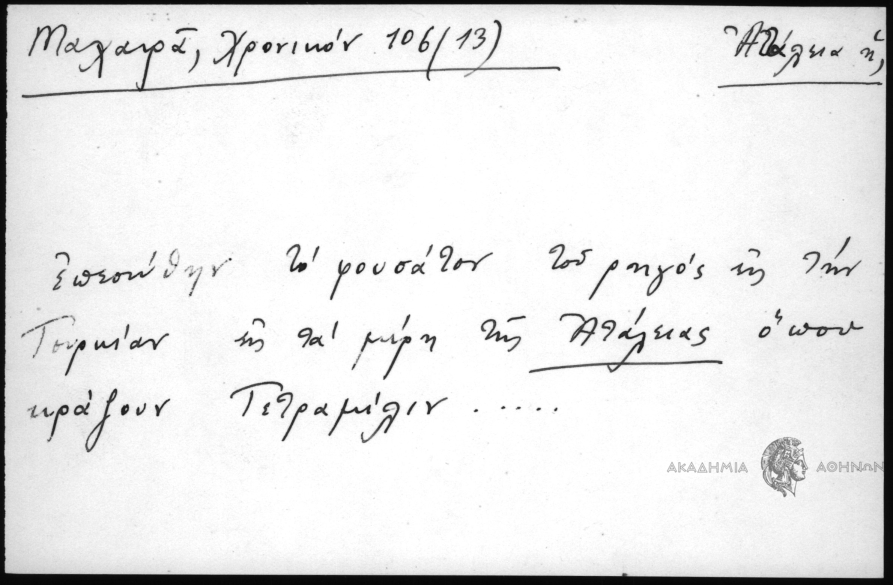 Μαχαιρᾶ, Χρονικόν 106 (13)
Ἀτάλεια ἡ,
ἐπεσώθην τὸ φουσάτον τοῦ ρηγός εἰς τὴν
Τουρκίαν εἰς τὰ μέρη τῆς Ἀτάλειας ὅπου
κράζουν Τετραμίλιν .....
ΑΚΑΔΗΜΙΑ ΑΘΗΝΩΝ